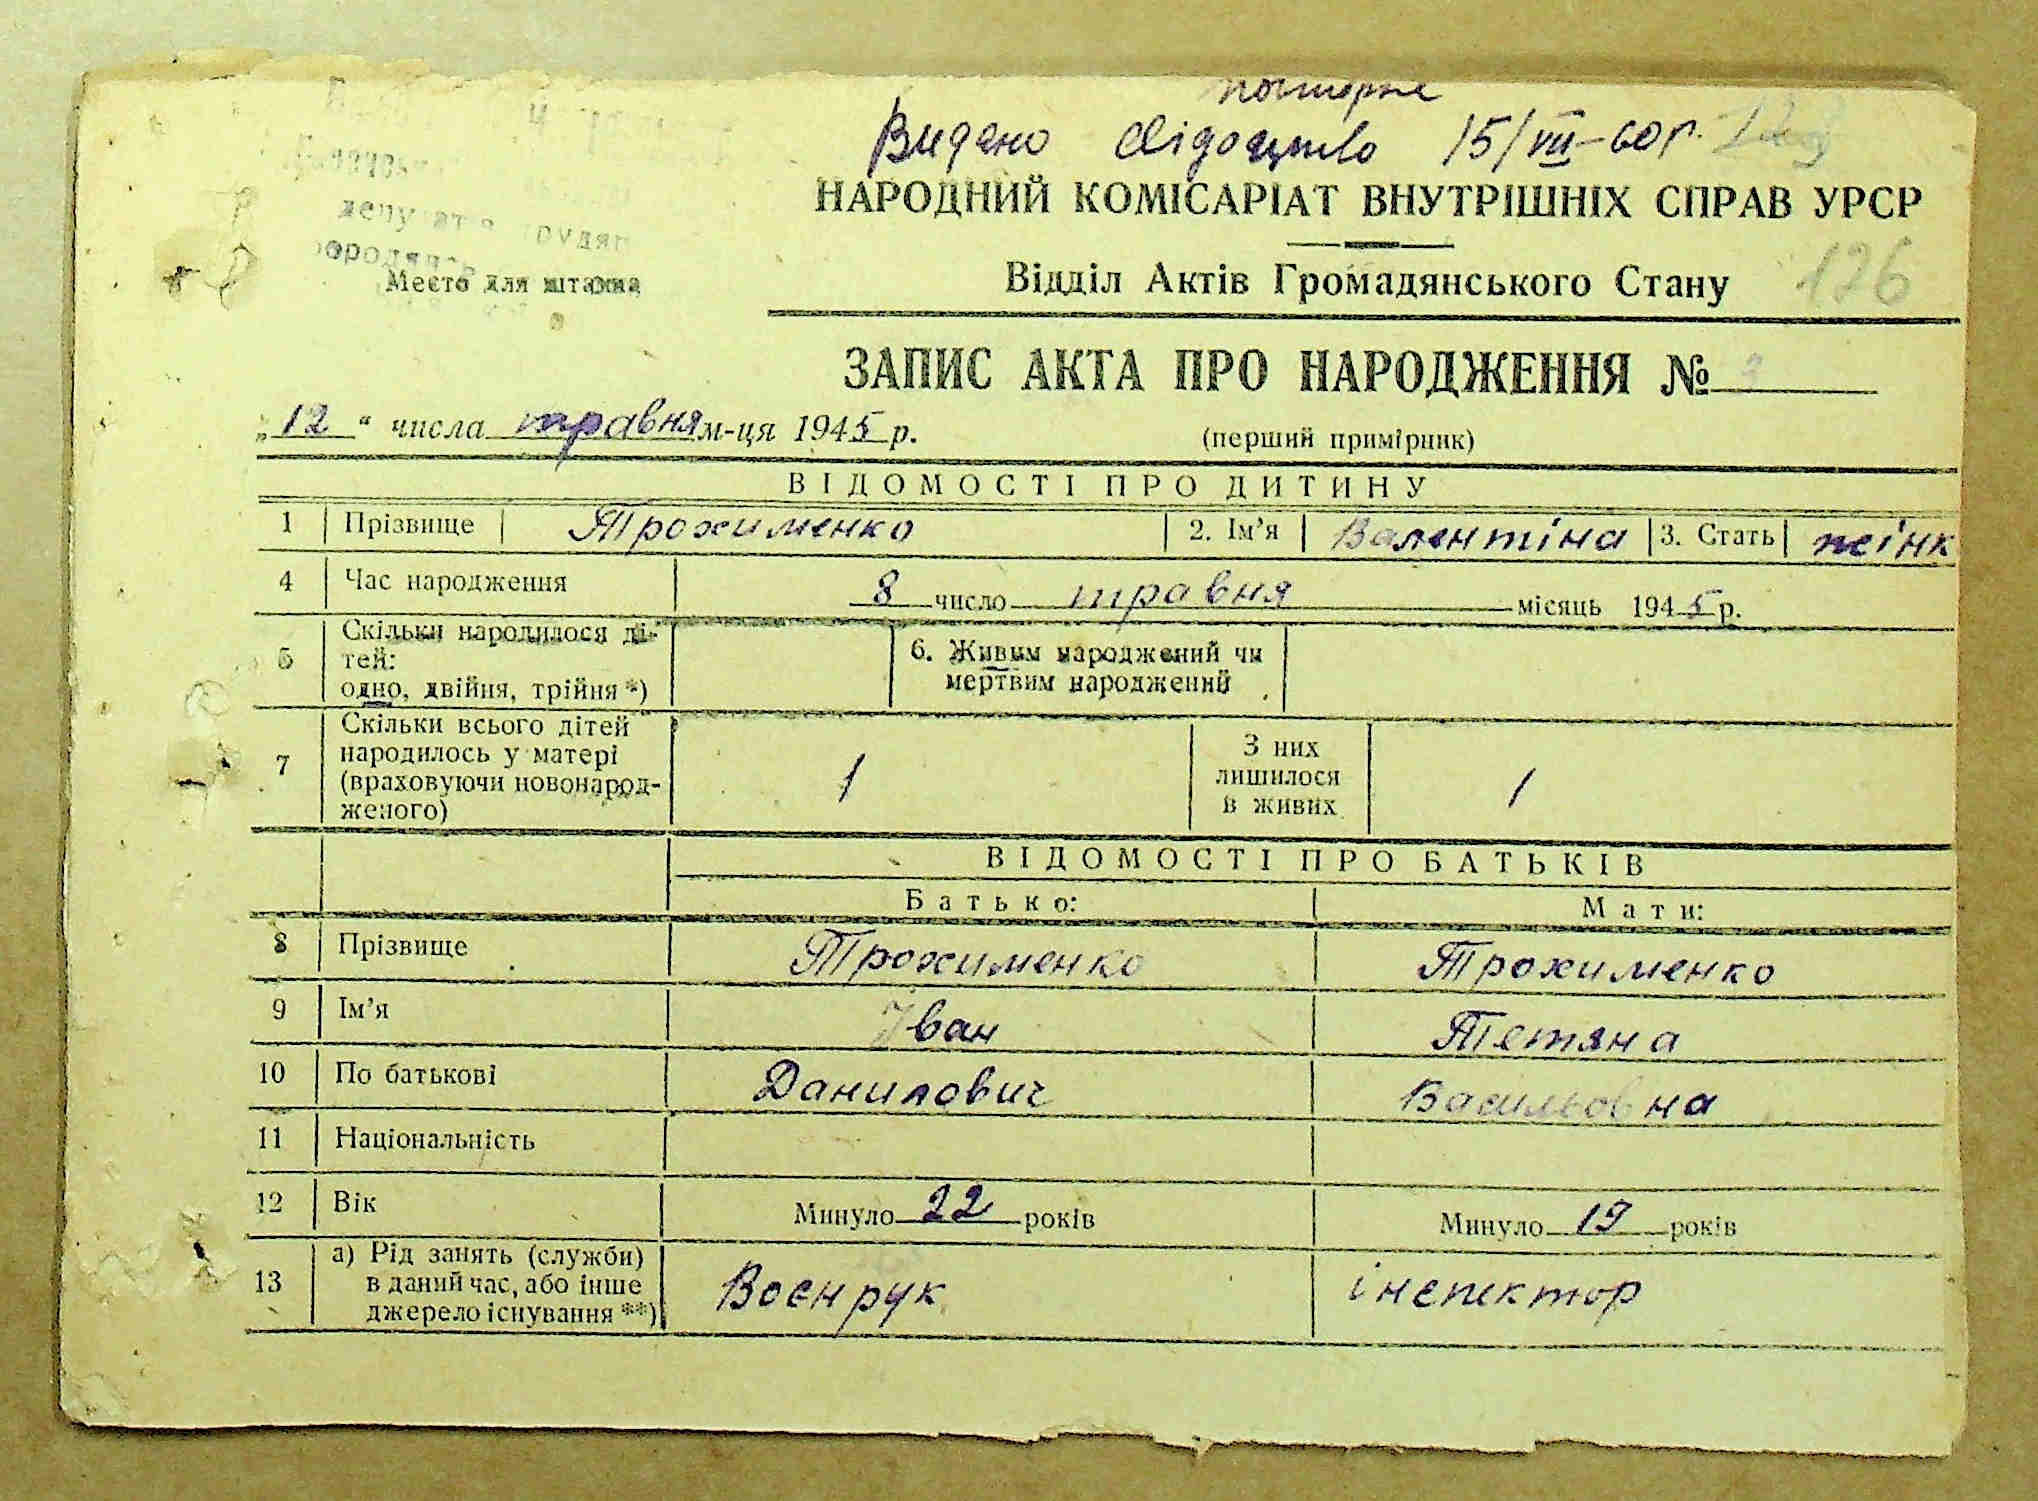 повторне
Видано свідоцтво 15/VII-60р.
НАРОДНИЙ КОМІСАРІАТ ВНУТРІШНІХ СПРАВ УРСР
Место для штампа
Відділ Актів Громадянського Стану 126
ЗАПИС АКТА ПРО НАРОДЖЕННЯ №
„12“ числа травня м-ця 1945 р. (перший примірник)
ВІДОМОСТІ ПРО ДИТИНУ
1 Прізвище Трохименко 2. Ім’я Валентіна 3. Стать жінк
4 Час народження 8 число травня місяць 1945 р.
5 Скільки народилося ді-
тей:
одно, двійня, трійня *)
6. Живим народжений чи
мертвим народжений
7 Скільки всього дітей
народилось у матері
(враховуючи новонарод-
женого)
1
З них
лишилося
в живих
1
ВІДОМОСТІ ПРО БАТЬКІВ
Батько: Мати:
8 Прізвище Трохименко Трохименко
9 Ім’я Іван Тетяна
10 По батькові Данилович Васильовна
11 Національність
12 Вік Минуло 22 років Минуло 19 років
13 а) Рід занять (служби)
в даний час, або інше
джерело існування **)
Воєнрук інспектор